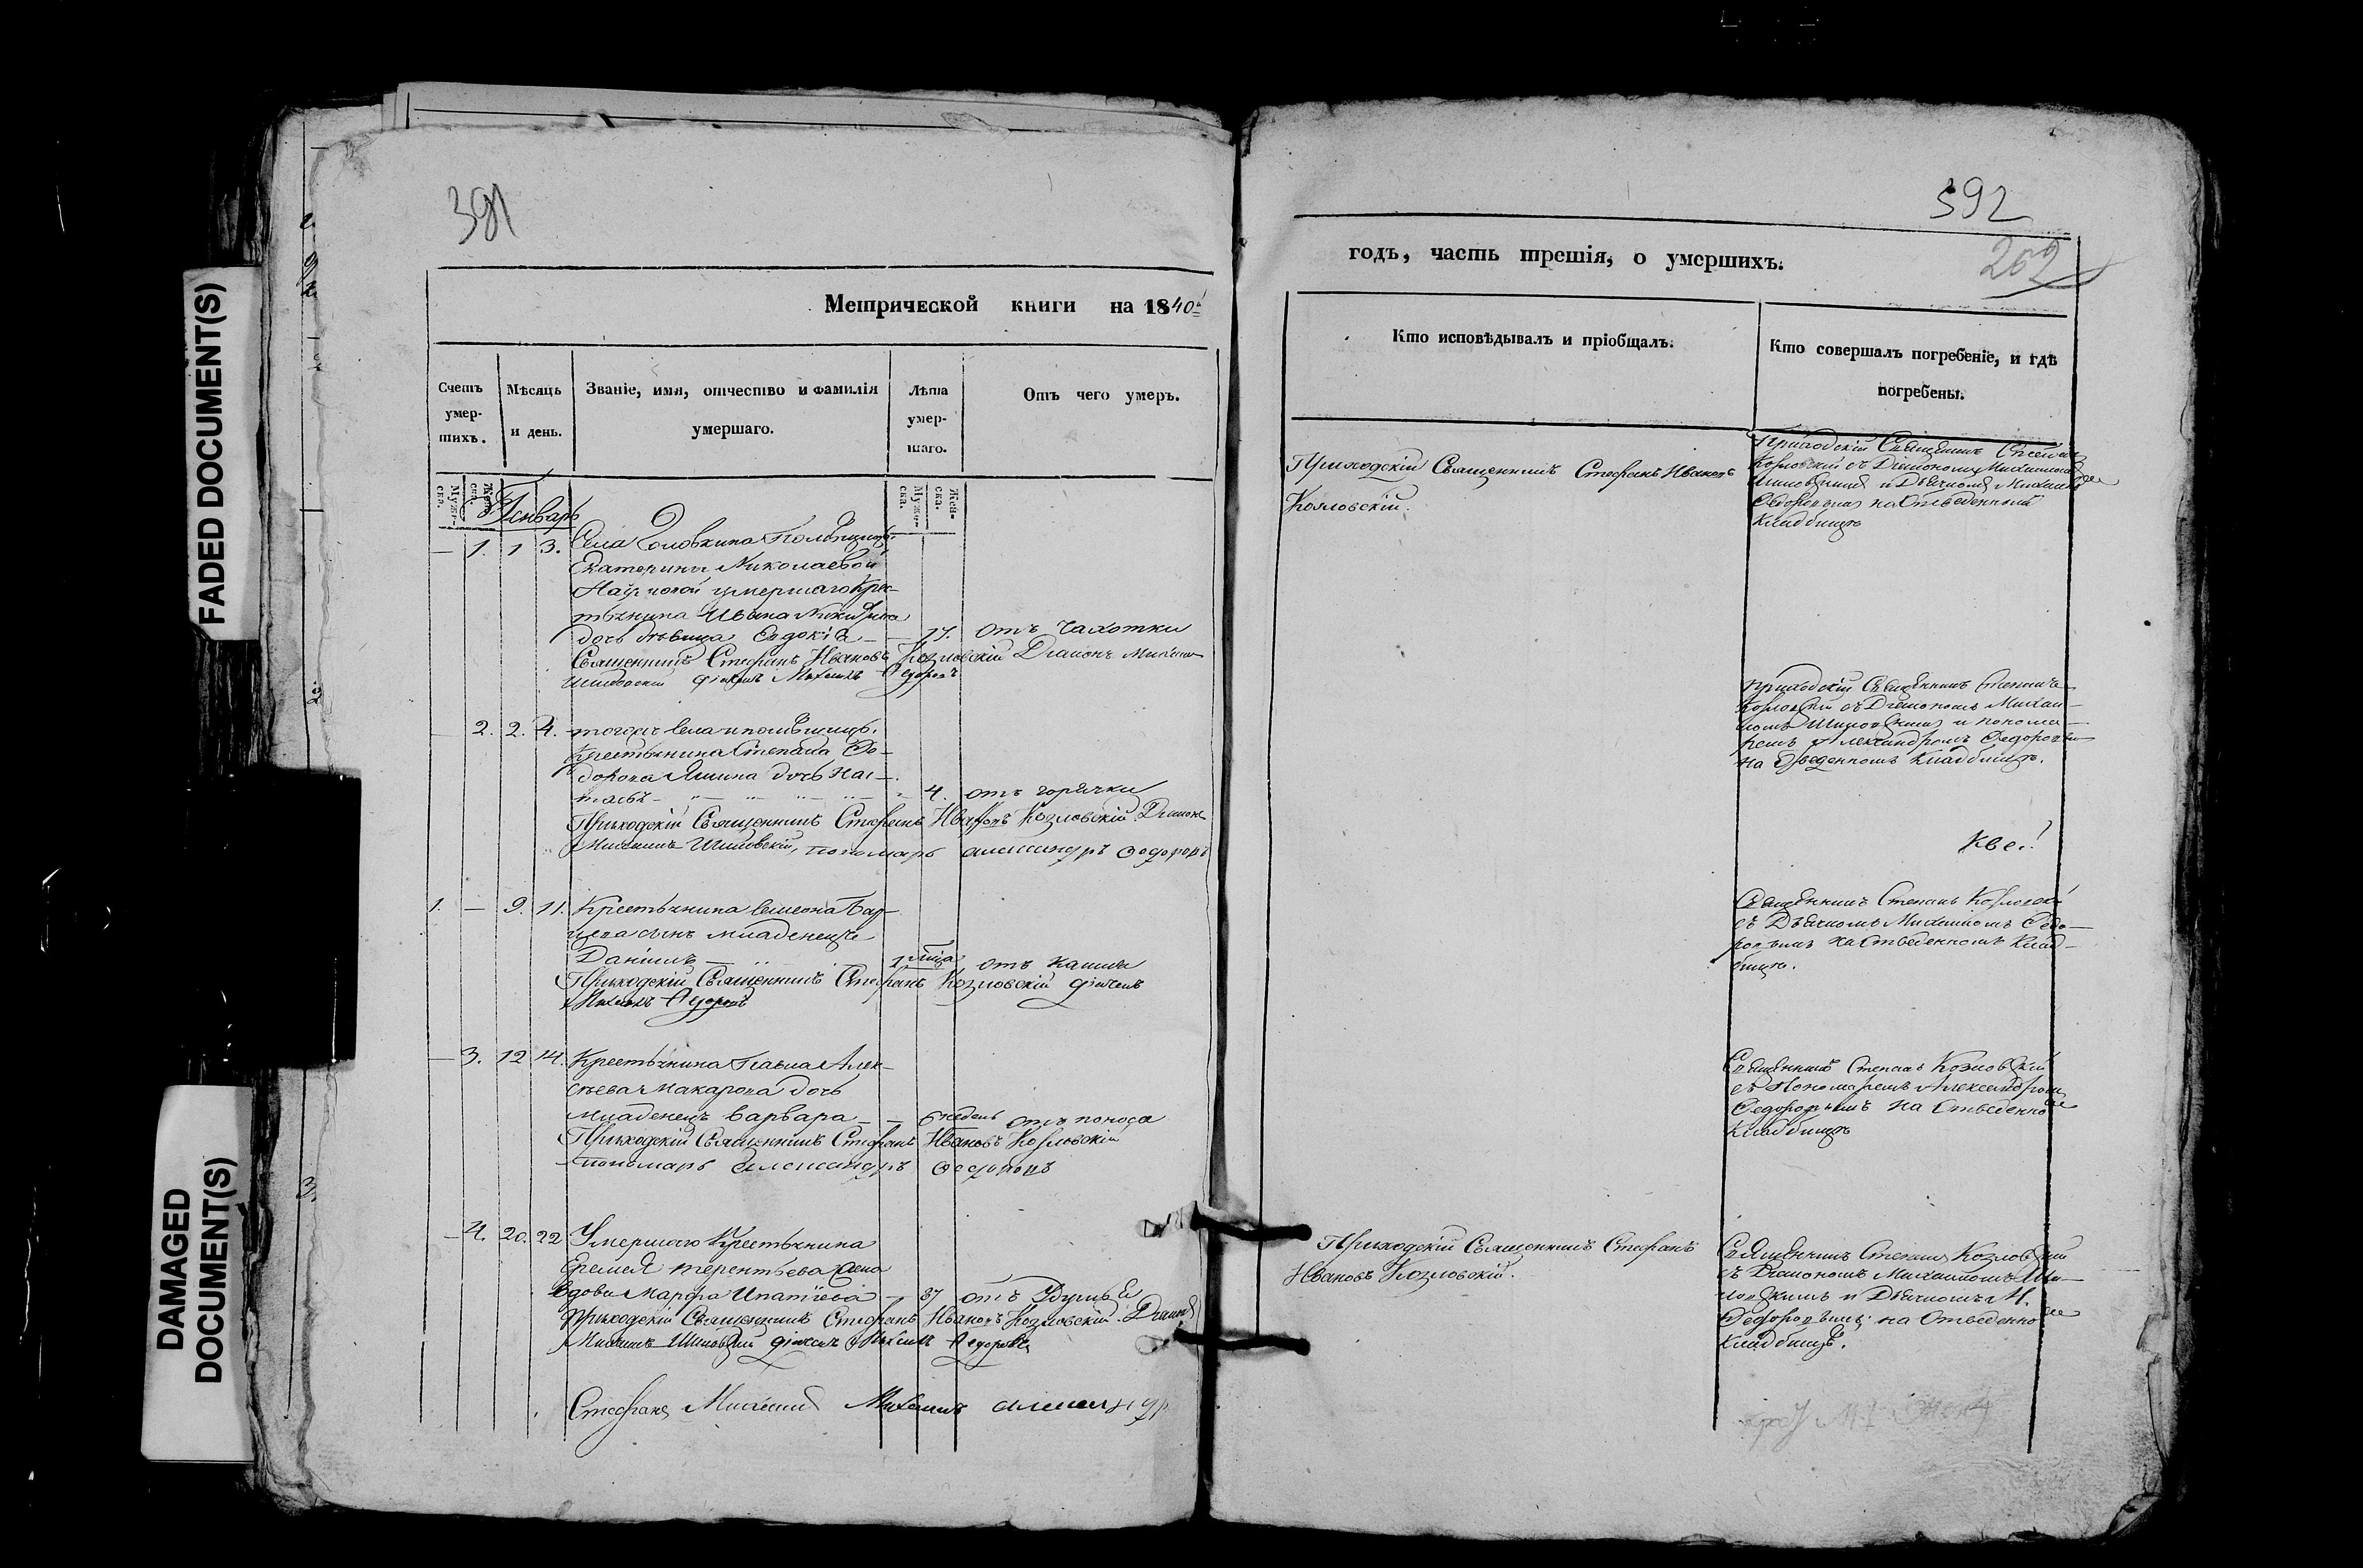 FADED DOCUMENT(S)
DAMAGED
DOCUMENT(S)
391
Метрической книги на 1840й
Счетъ
умер-
шихъ.
Мѣсяцъ
и день.
Званіе, имя, отчество и фамилія
умершаго.
Лѣта
умер-
шаго.
Отъ чего умеръ.
Муже-
ска.
Жен-
ска.
Муже-
ска.
Жен-
ска.
Генварь
— 1. 1 3. Села Головкина Помѣщицы
Екатерины Николаевой
Наумовой умершаго Крес-
тьянина Ивана
дочь дѣвица Евдокія — — 17. отъ Чахотки
Священникъ Стефанъ Ивановъ Козловскій Діаконъ Михаилъ
Шиловскій дьячекъ Михаилъ Федоровъ
— 2. 2. 4. тогожъ села и помѣщицы.
Крестьянина Степана Фе-
дорова Яшина дочь На-
талья — 4. отъ горячки
Приходскій Священникъ Стефанъ Ивановъ Козловскій. Діаконъ
Михаилъ Шиловскій, пономарь Александръ Федоровъ
1. — 9. 11. Крестьянина Семеона
сынъ младенецъ
Даніилъ — 1 мѣсяца отъ кашля
Приходскій Священникъ Стефанъ Козловскій дьячекъ
Михаилъ Федоровъ
— 3. 12 14. Крестьянина Павла Алек-
сѣева Макарова дочь
младенецъ Варвара — — 6 недель отъ поноса
Приходскій Священникъ Стефанъ Ивановъ Козловскій
пономарь Александръ Федоровъ
— 4. 20. 22 Умершаго Крестьянина
Еремея Терентьева жена
вдова Марфа Ипатіева — 37 отъ
Приходскій Священникъ Стефанъ Ивановъ Козловскій. Діаконъ
Михаилъ Шиловскій дьячекъ Михаилъ Федоровъ
Стефанъ Михаилъ Михаилъ Александръ
392
202
годъ, часть третія, о умершихъ.
Кто исповѣдывалъ и пріобщалъ.
Кто совершалъ погребеніе, и гдѣ
погребены.
Приходскій Священникъ Стефанъ Ивановъ
Козловскій.
Приходскій Священникъ Стефанъ
Козловскій съ Діакономъ Михаиломъ
Шиловскимъ и Дьячкомъ Михаиломъ
Федоровымъ на Отведенномъ
Кладбищѣ
Приходскій Священникъ Степанъ
Козловскій съ Діакономъ Михаи-
ломъ Шиловскимъ и понома-
ремъ Александромъ Федоровымъ
на Отведенномъ Кладбищѣ.
Священникъ Степанъ Козловскій
съ Дьячкомъ Михаиломъ Федо-
ровымъ на Отведенномъ Клад-
бищѣ.
Священникъ Степанъ Козловскій
съ Пономаремъ Александромъ
Федоровымъ на Отведенномъ
Кладбищѣ
Приходскій Священникъ Стефанъ
Ивановъ Козловскій.
Священникъ Степанъ Козловскій
съ Діакономъ Михаиломъ Ши-
ловскимъ и Дьячкомъ М.
Федоровымъ на Отведенномъ
Кладбищѣ.